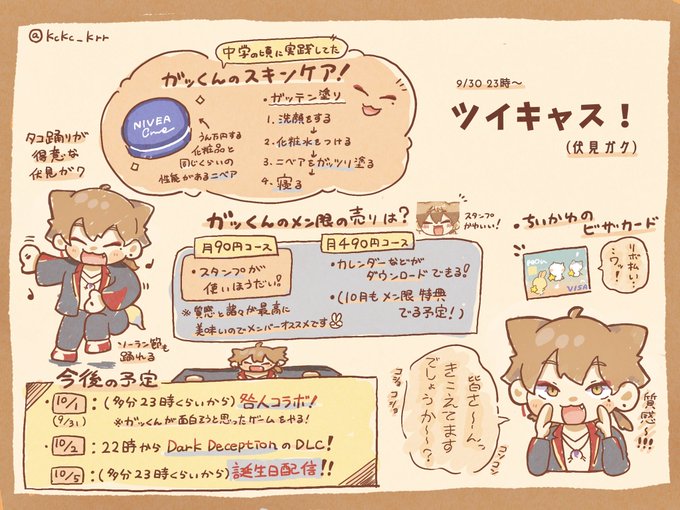 @kckc_krr
中学の頃に実践してた
ガッくんのスキンケア!
NIVEA
Creme
うん万円する
化粧品と
同じくらいの
性能があるニベア
・ガッテン塗り
1. 洗顔をする
↓
2. 化粧水をつける
↓
3. ニベアをガッツリ塗る
↓
4. 寝る
9/30 23時〜
ツイキャス!
(伏見ガク)
タコ踊りが
得意な
伏見ガク
ソーラン節も
踊れる
ガッくんのメン限の売りは?
スタンプ
かわいい!
月90円コース
・スタンプが
使いほうだい!
月490円コース
・カレンダーなどが
ダウンロードできる!
・(10月もメン限特典
でる予定!)
※質感と諸々が最高に
美味いのでメンバーオススメです
・ちいかわの
ビザ・カード
VISA
リボ払い…
ワッ!
今後の予定
・10/1:(多分23時くらいから)咎人コラボ!
(9/31) ※ガッくんが面白そうと思ったゲームをやる!
・10/2:22時からDark DeceptionのDLC!
・10/5:(多分23時くらいから)誕生日配信!!
皆さ〜〜んっ
きこえてます
でしょうか〜〜?
コショコショ
コソコソ
質感〜!!!